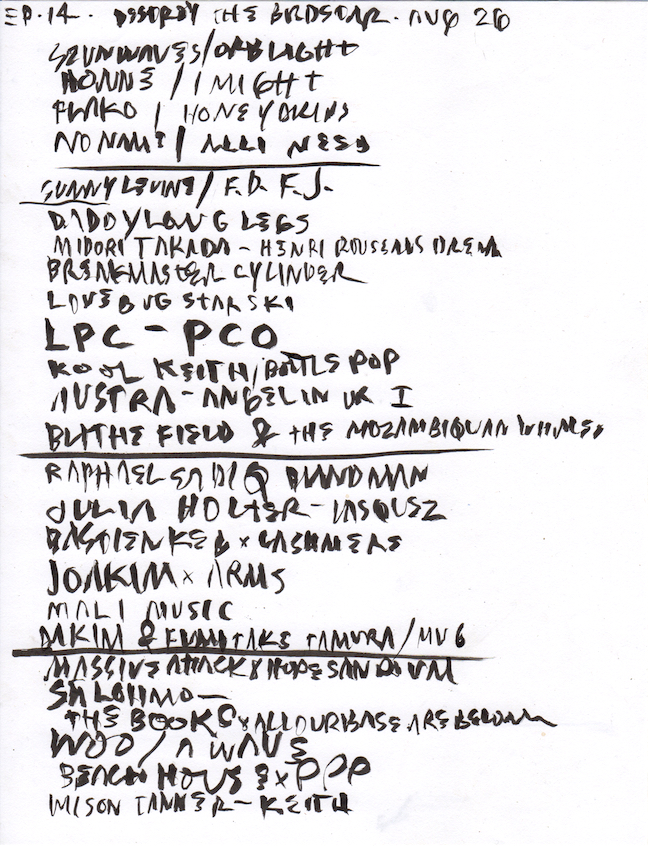 EP. 14. DESTROY THE BIRDSCAR. AUG 26
SZUNWAVES/ORBLIGHT
HONNE / I MIGHT
FLAKO / HONEYDRIPS
NONAME /
SUNNY LEVINE / F.D.F.J.
DADDY LONG LEGS
MIDORI TAKADA - HENRI ROUSEAUS DREM
BREAKMASTER CYLINDER
LOVEBUG STARSKI
LPC - PCO
KOOL KEITH / BOTTLE POP
AUSTRA - ANGEL IN UR I
BLITHE FIELD & THE MOZAMBIQUAN
RAPHAEL SADIQ BLINDMAN
JULIA HOLTER - VASQUEZ
BASTIEN KEB x CASHMERE
JOAKIM x ARMS
MALI MUSIC
DAKIM & FUMITAKE TAMURA / MV6
MASSIVE ATTACK & HOPE SANDOVAL
SALOMO -
THE BOOKS x ALL OUR BASE ARE BELONG
WOO / A WAVE
BEACH HOUSE x PPP
WILSON TANNER - KEITH